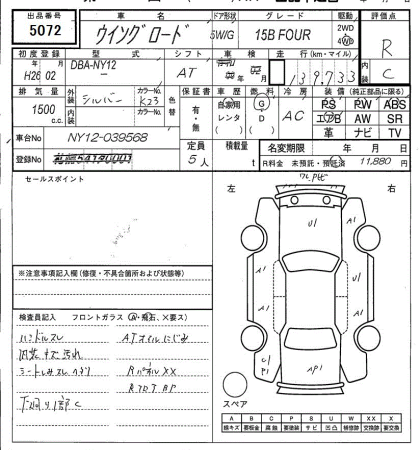 出品番号 車名 ドア形状 グレード 駆動 評価点
5072 ウイングロード 5W/G 15B FOUR 2WD 4WD R
初度登録 型式 シフト 車検 走行(km・マイル) C
H26 02 DBA-NY12 AT 139,733
排気量 外装 カラーNo. 色替 保証書 車歴 燃料 冷房 装備(純正部品に限る)
1500 c.c. シルバー K23 有・無 自家用 レンタ G D AC PS PW ABS
内装 カラーNo. エアB AW SR
革 ナビ TV
車台No NY12-039568 定員 積載量 名変期限 年 月 日
登録No 5人 t R料金 未預託・預託済 11,880 円
セールスポイント
左 右
U1
A1 A1
A1 A1
※注意事項記入欄(修復・不具合箇所および状態等)
検査員記入 フロントガラス(A・飛石、×要ス)
ハンドルスレ ATオイルにじみ
内装キズ汚れ
シートしみスレヘタリ Rパネル XX
C1 P1 AP1
スペア
A B C P S U W XX X
線キズ 要板金 腐蝕 要塗装 サビ 凹凸 補修跡 交換跡 要交換